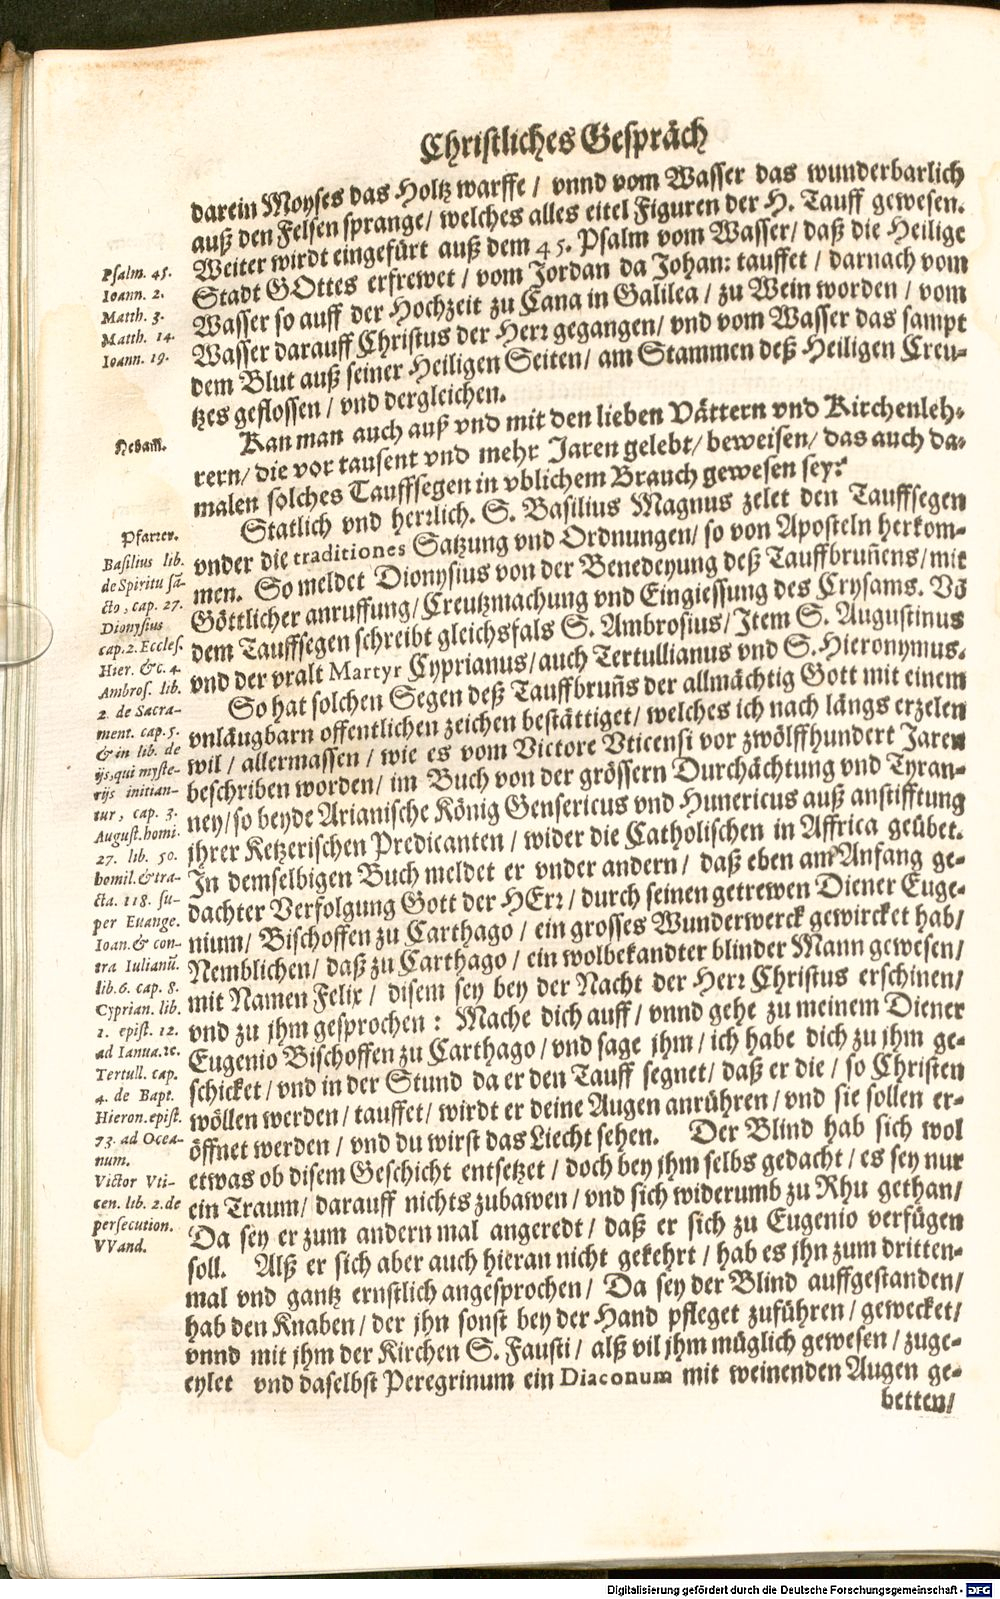 Christliches Gespräch
darein Moyses das Holtz warffe / vnnd vom Wasser das wunderbarlich
auß den Felsen sprange/ welches alles eitel Figuren der H. Tauff gewesen.
Weiter wirdt eingefürt auß dem 45. Psalm vom Wasser/ daß die Heilige
Stadt GOttes erfrewet / vom Jordan da Johan: tauffet / darnach vom
Wasser so auff der Hochzeit zu Cana in Galilea / zu Wein worden / vom
Wasser darauff Christus der Herr gegangen/ vnd vom Wasser das sampt
dem Blut auß seiner Heiligen Seiten/ am Stammen deß Heiligen Creu-
tzes geflossen / vnd dergleichen.
Psalm. 45.
Ioann. 2.
Matth. 3.
Matth. 14.
Ioann. 19.
Hebam.
Kan man auch auß vnd mit den lieben Vättern vnd Kirchenleh-
rern/ die vor tausent vnd mehr Jaren gelebt/ beweisen/ das auch da-
malen solches Tauffsegen in vblichem Brauch gewesen sey?
Pfarrer.
Statlich vnd herrlich. S. Basilius Magnus zelet den Tauffsegen
vnder die traditiones Satzung vnd Ordnungen/ so von Aposteln herkom-
men. So meldet Dionysius von der Benedeyung deß Tauffbruñens/ mit
Göttlicher anruffung/ Creutzmachung vnd Eingiessung des Crysams. Võ
dem Tauffsegen schreibt gleichsfals S. Ambrosius/ Item S. Augustinus
vnd der vralt Martyr Cyprianus/ auch Tertullianus vnd S. Hieronymus.
So hat solchen Segen deß Tauffbruñs der allmächtig Gott mit einem
vnläugbarn offentlichen zeichen bestättiget/ welches ich nach längs erzelen
wil / allermassen / wie es vom Victore Vticensi vor zwölffhundert Jaren
beschriben worden/ im Buch von der grössern Durchächtung vnd Tyran-
ney/ so beyde Arianische König Gensericus vnd Hunericus auß anstifftung
jhrer Ketzerischen Predicanten / wider die Catholischen in Affrica geübet.
In demselbigen Buch meldet er vnder andern / daß eben am Anfang ge-
dachter Verfolgung Gott der HErr / durch seinen getrewen Diener Euge-
nium/ Bischoffen zu Carthago / ein grosses Wunderwerck gewircket hab/
Nemblichen/ daß zu Carthago / ein wolbekandter blinder Mann gewesen/
mit Namen Felix / disem sey bey der Nacht der Herr Christus erschinen/
vnd zu jhm gesprochen : Mache dich auff / vnnd gehe zu meinem Diener
Eugenio Bischoffen zu Carthago / vnd sage jhm / ich habe dich zu jhm ge-
schicket / vnd in der Stund da er den Tauff segnet/ daß er die / so Christen
wöllen werden / tauffet/ wirdt er deine Augen anrühren / vnd sie sollen er-
öffnet werden / vnd du wirst das Liecht sehen. Der Blind hab sich wol
etwas ob disem Geschicht entsetzet / doch bey jhm selbs gedacht / es sey nur
ein Traum/ darauff nichts zubawen / vnd sich widerumb zu Rhu gethan/
Da sey er zum andern mal angeredt / daß er sich zu Eugenio verfügen
soll. Alß er sich aber auch hieran nicht gekehrt / hab es jhn zum dritten-
mal vnd gantz ernstlich angesprochen / Da sey der Blind auffgestanden/
hab den Knaben / der jhn sonst bey der Hand pfleget zuführen / gewecket/
vnnd mit jhm der Kirchen S. Fausti / alß vil jhm müglich gewesen / zuge-
eylet vnd daselbst Peregrinum ein Diaconum mit weinenden Augen ge-
betten/
Basilius lib.
de Spiritu sã-
cto, cap. 27.
Dionysius
cap. 2. Eccles.
Hier. &c. 4.
Ambros. lib.
2. de Sacra-
ment. cap. 5.
& in lib. de
ijs, qui myste-
rijs initian-
tur, cap. 3.
August. homi.
27. lib. 50.
homil. & tra-
cta. 118. su-
per Euange.
Ioan. & con-
tra Iulianũ.
lib. 6. cap. 8.
Cyprian. lib.
1. epist. 12.
ad Ianua. &c.
Tertull. cap.
4. de Bapt.
Hieron. epist.
73. ad Ocea-
num.
Victor Vti-
cen. lib. 2. de
persecution.
VVand.
Digitalisierung gefördert durch die Deutsche Forschungsgemeinschaft - DFG